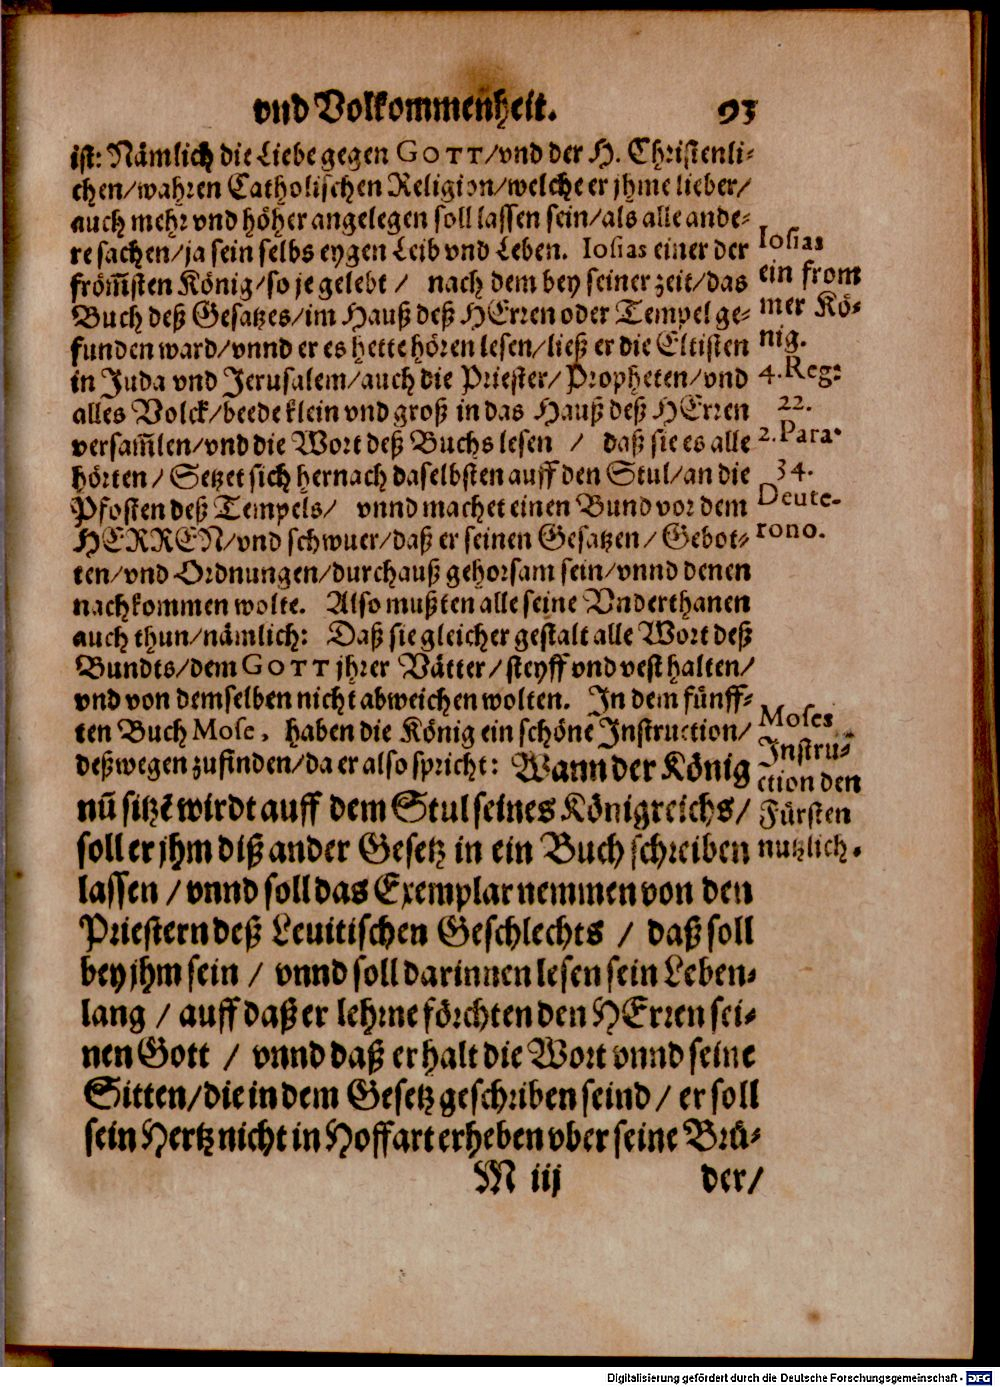 vnd Volkommenheit. 93
ist: Nämlich die Liebe gegen GOTT/vnd der H. Christenli-
chen/wahren Catholischen Religion/welche er jhme lieber/
auch mehr vnd höher angelegen soll lassen sein/als alle ande-
re sachen/ja sein selbs eygen Leib vnd Leben. Iosias einer der
from̃sten König/so je gelebt / nach dem bey seiner zeit/das
Buch deß Gesatzes/im Hauß deß HErren oder Tempel ge-
funden ward/vnnd er es hette hören lesen/ließ er die Eltisten
in Juda vnd Jerusalem/auch die Priester/Propheten/vnd
alles Volck/beede klein vnd groß in das Hauß deß HErren
versam̃len/vnd die Wort deß Buchs lesen / daß sie es alle
hörten/Setzet sich hernach daselbsten auff den Stul/an die
Pfosten deß Tempels/ vnnd machet einen Bund vor dem
HERREN/vnd schwuer/daß er seinen Gesatzen/Gebot-
ten/vnd Ordnungen/durchauß gehorsam sein/vnnd denen
nachkommen wolte. Also mußten alle seine Vnderthanen
auch thun/nämlich: Daß sie gleicher gestalt alle Wort deß
Bundts/dem GOTT jhrer Vätter/steyff vnd vest halten/
vnd von demselben nicht abweichen wolten. In dem fünff-
ten Buch Mose, haben die König ein schöne Instruction/
deßwegen zufinden/da er also spricht: Wann der König
nũ sitzẽ wirdt auff dem Stul seines Königreichs/
soll er jhm diß ander Gesetz in ein Buch schreiben
lassen/vnnd soll das Exemplar nemmen von den
Priestern deß Leuitischen Geschlechts / daß soll
bey jhm sein / vnnd soll darinnen lesen sein Leben-
lang / auff daß er lehrne förchten den HErren sei-
nen Gott / vnnd daß er halt die Wort vnnd seine
Sitten/die in dem Gesetz geschriben seind/er soll
sein Hertz nicht in Hoffart erheben vber seine Brü-
M iij der/
Iosias
ein from
mer Kö-
nig.
4.Reg:
22.
2.Para.
34.
Deute-
rono.
Moses
Instru-
ction den
Fürsten
nutzlich.
Digitalisierung gefördert durch die Deutsche Forschungsgemeinschaft - DFG